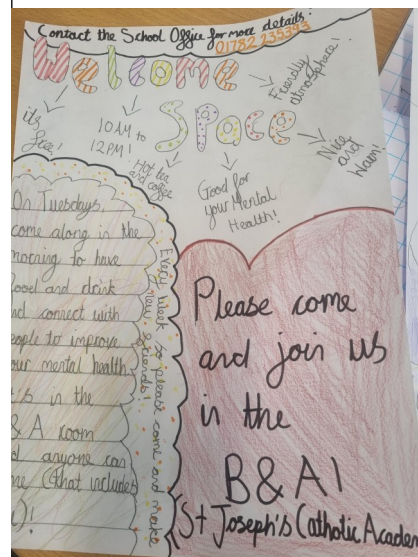 Contact the School Office for more details!
01782 235393
Welcome
Space
its
free!
10AM to
12PM!
Hot tea
and coffee
Good for
your Mental
Health!
Friendly
atmosphere!
Nice
and
Warm!
On Tuesdays,
come along in the
morning to have
food and drink
and connect with
people to improve
our mental health.
's in the
& A room
d anyone can
me (that includes
)!
Every week so please come and make
new friends!
Please come
and join us
in the
B&A!
St Joseph's Catholic Academ